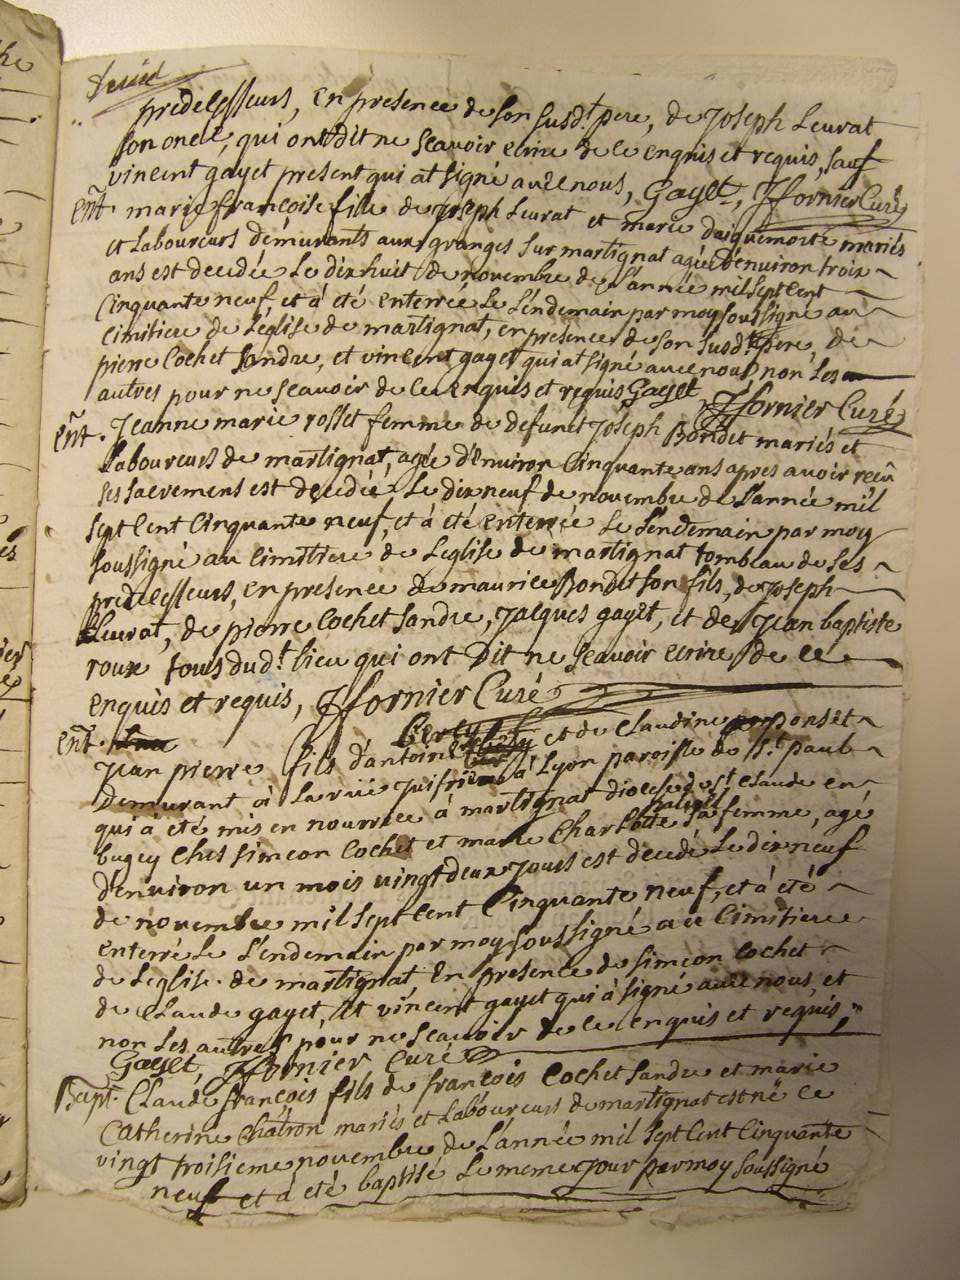 predecesseurs, en presence de son susd.t pere, de Joseph Leurat
son oncle, qui ont dit ne scavoir ecrire de ce enquis et requis, sauf
vincent gayet present qui at signé avec nous, Gayet, J fornier Curé
Ent. marie françoise fille de Joseph Leurat et marie mariés
et Laboureurs demurants aux granges sur martignat agée d'environ troix
ans est decedée Le dixhuit de novembre de L'année mil sept cent
Cinquante neuf et à été enterrée Le Lendemain par moy soussigné au
Cimitiere de L'église de martignat, en presence de son susd.t pere, de
pierre Cochet Sandre, et vincent gayet qui at signé avec nous non Les
autres pour ne scavoir de ce enquis et requis Gayet J fornier Curé
Ent. Jeanne marie rosset femme de defunct Joseph Bondet mariés et
Laboureurs de martignat, agée d'environ Cinquante ans apres avoir reçû
ses sacremens est decedée Le dix neuf de novembre de L'année mil
sept cent cinquante neuf, et à été enterrée Le Lendemain par moy
soussigné au Cimitiere de L'eglise de martignat tombeau de ses
predecesseurs, en presence de maurice Bondet son fils, de Joseph
Leurat, de pierre Cochet Sandre, Jacques gayet, et de Jean baptiste
roux tous dud.t lieu qui ont Dit ne scavoir ecrire de ce
enquis et requis, J fornier Curé
Ent.
Jean pierre fils d'antoine et de Claudine ponset
demurant à La rüe Juifrie à Lyon paroisse de S.t paul
qui à été mis en nourrice à martignat diocese de S.t Claude en
bugey Chés simeon Cochet et marie Charlotte sa femme, agé
d'environ un mois vingt deux Jours est decedé Le dix neuf
de novembre mil sept cent Cinquante neuf, et à été
enterré Le Lendemain par moy soussigné au Cimitiere
de L'eglise de martignat, En presence de simeon Cochet
de Claude gayet, et vincent gayet qui à signé avec nous, et
non Les autres pour ne scavoir de ce enquis et requis,
Gayet, J fornier Curé
Bapt. Claude françois fils de françois Cochet Sandre et marie
Catherine Chatron mariés et Laboureurs de martignat est né Le
vingt troisieme novembre de L'année mil sept cent cinquante
neuf et à été baptisé Le meme Jour par moy soussigné